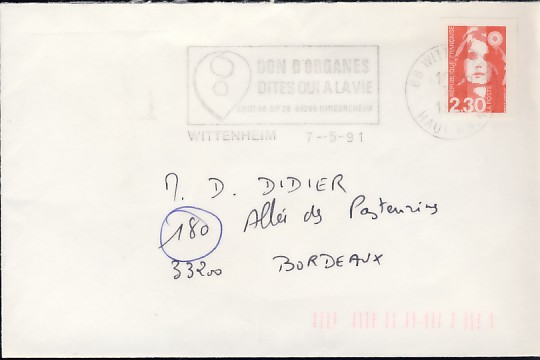 DON D'ORGANES
DITES OUI A LA VIE
WITTENHEIM 7--5-91
68 WITT
HAUT
REPUBLIQUE FRANÇAISE
LA POSTE
2,30
M. D. DIDIER
180 Allée des
33200 BORDEAUX